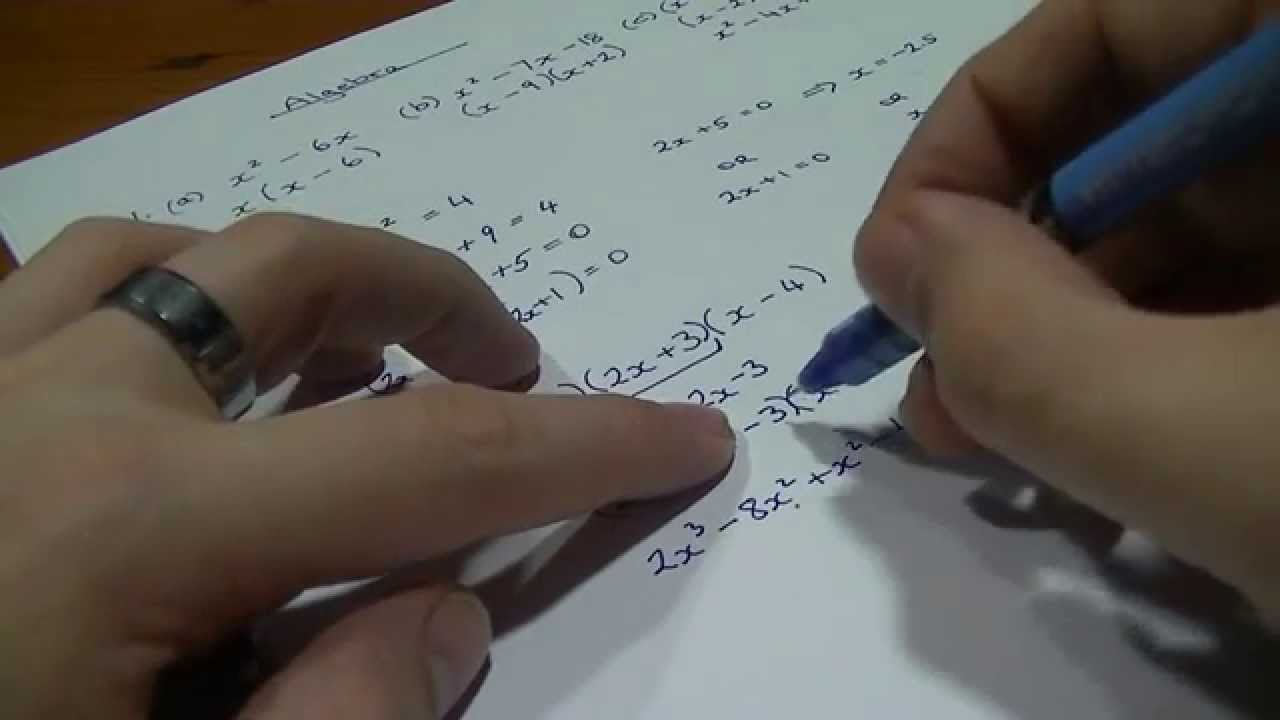 Algebra
1. (a) x² - 6x
x(x - 6)
(b) x² - 7x - 18
(x - 9)(x + 2)
(c) (x
(x -
x² - 4x
² = 4
+ 9 = 4
+ 5 = 0
2x+1) = 0
2x + 5 = 0 ⇒ x = -2.5
OR OR
2x + 1 = 0 x
)(2x + 3)(x - 4)
2x - 3
- 3)(x
2x³ - 8x² + x² -